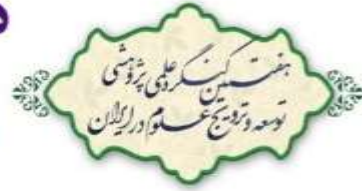 هفتمین کنگره علمی پژوهشی
توسعه و ترویج علوم در ایران